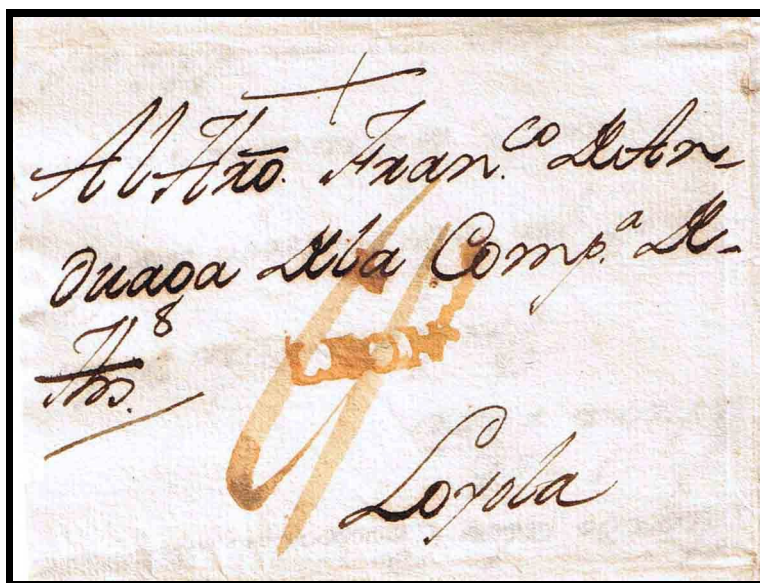 Al Hno. Fran.co De An-
duaga Dela Comp.a De-
Jhs.
Loyola